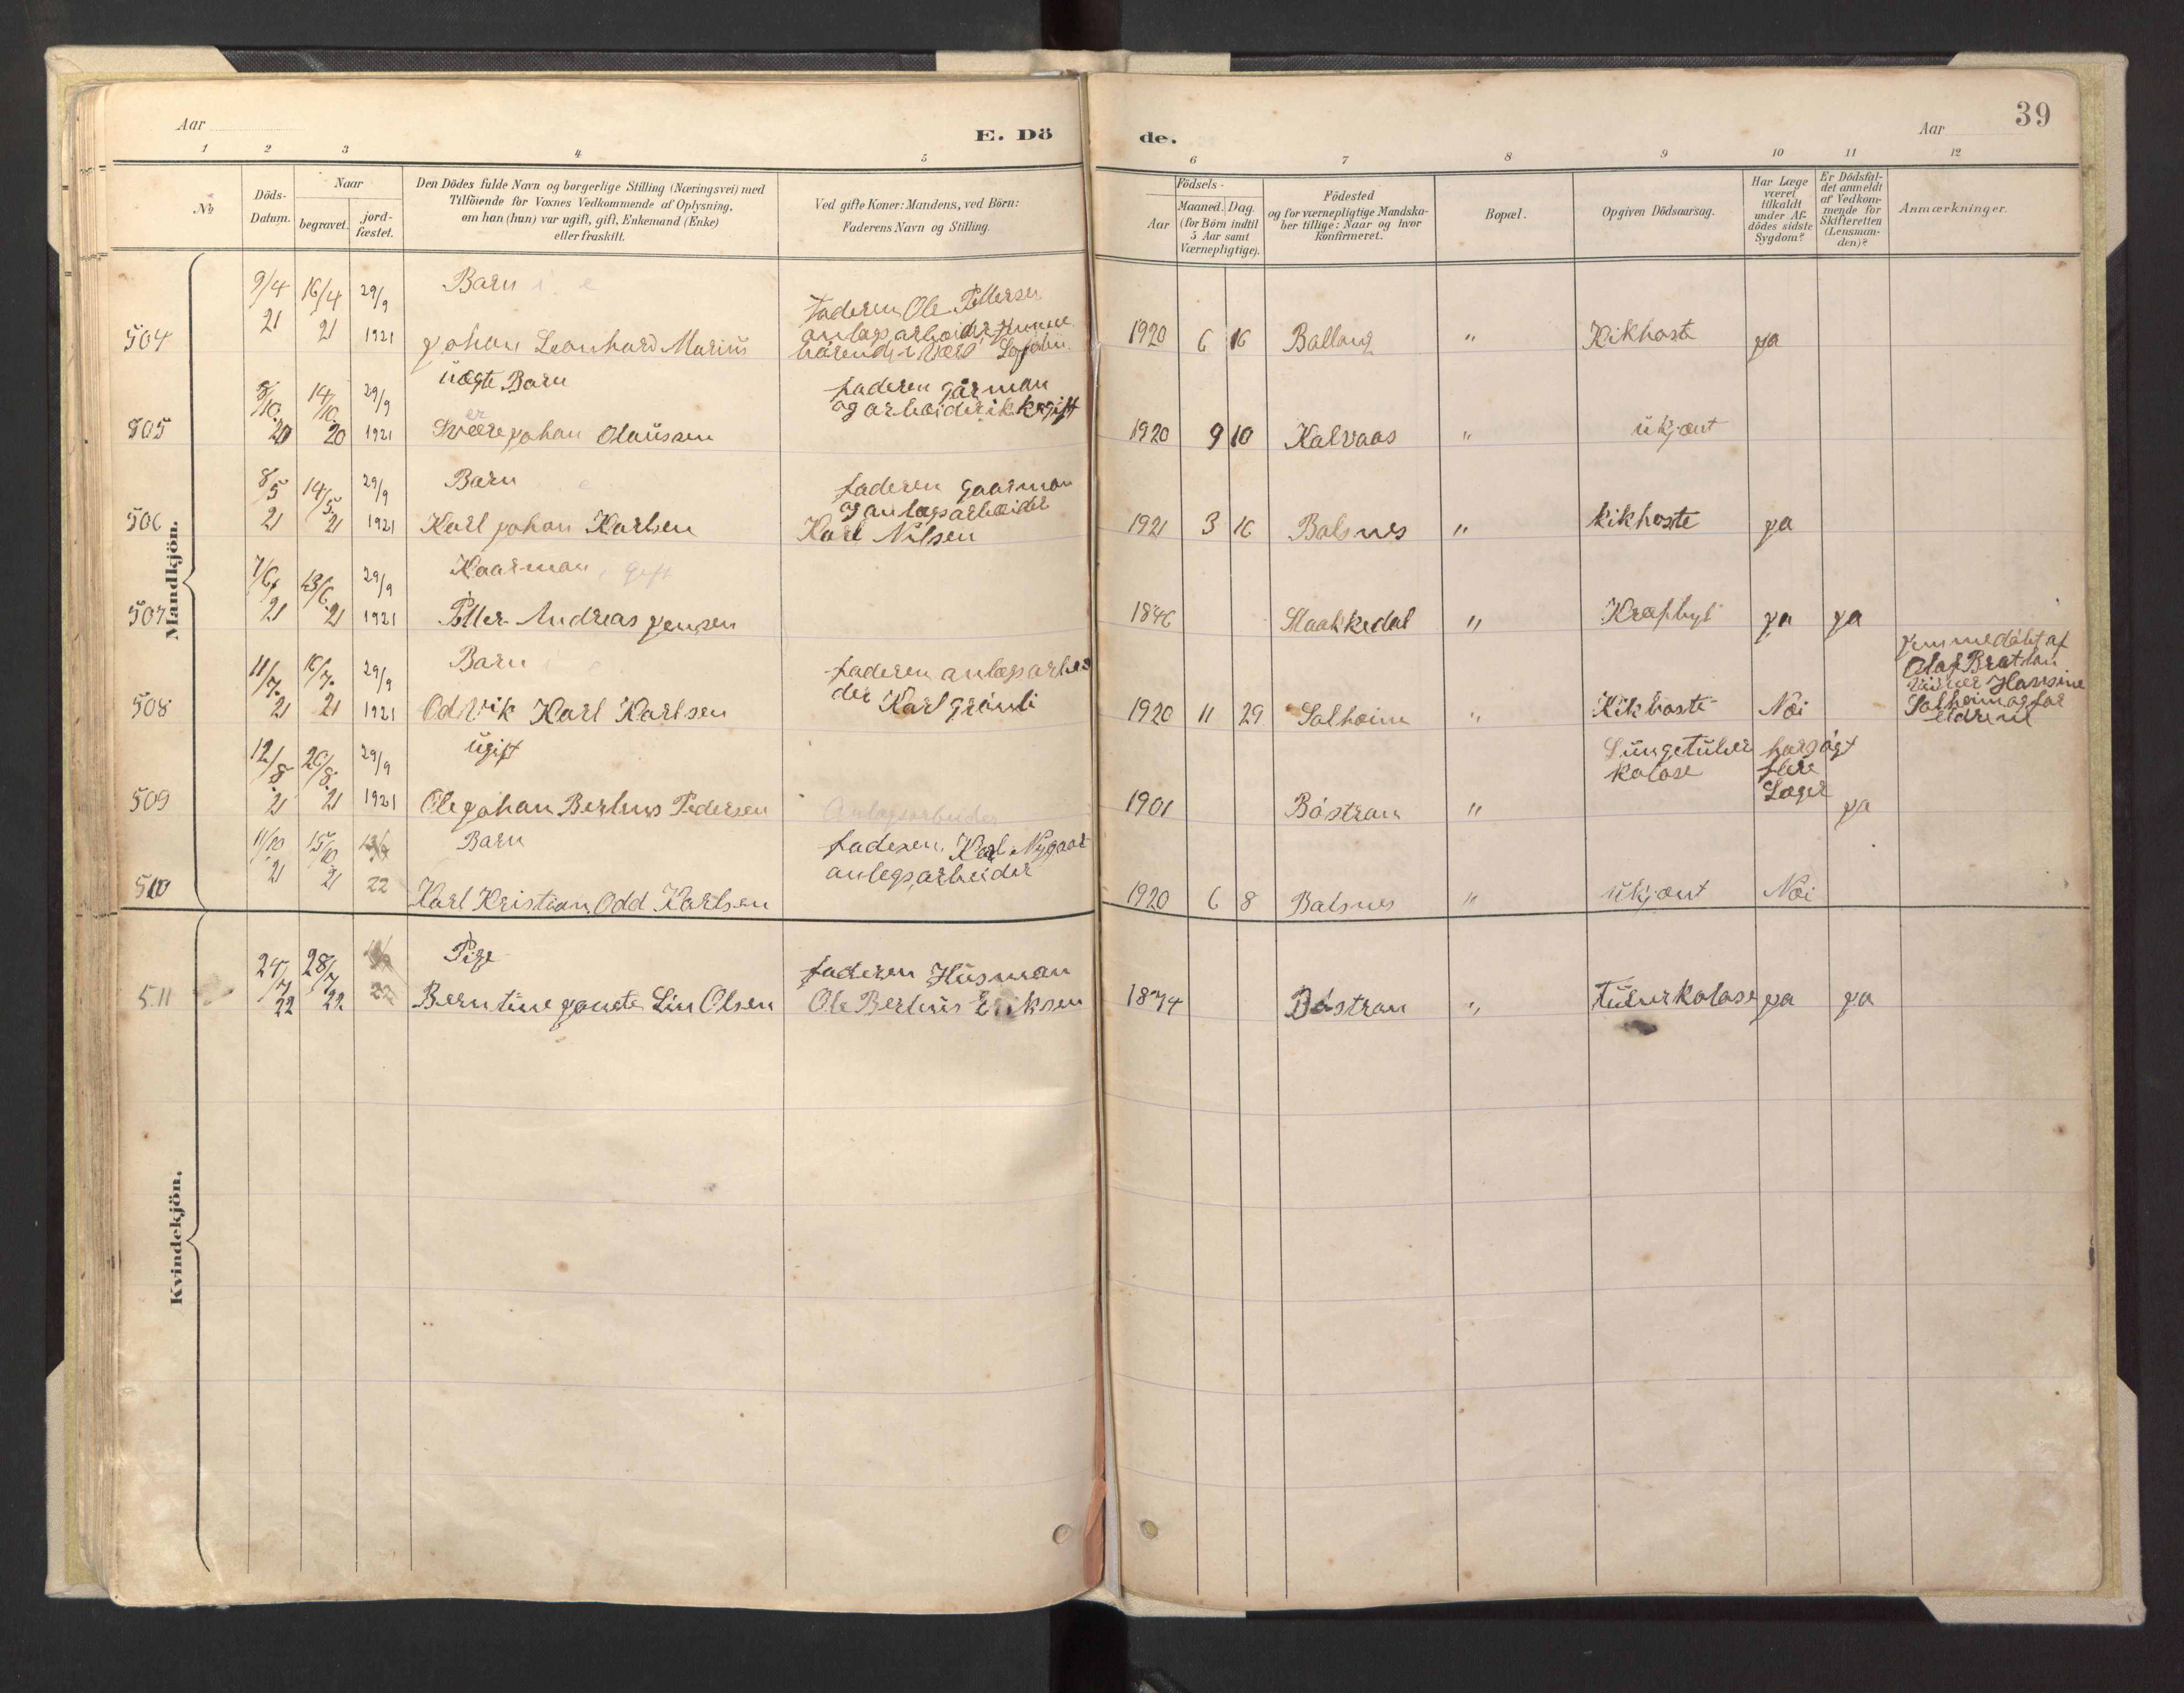 Aar
E. Dö
de.
Aar
39
1 2 3 4 5 6 7 8 9 10 11 12
No
Döds-
Datum.
Naar
begravet.
jord-
fæstet.
Den Dödes fulde Navn og borgerlige Stilling (Næringsvei) med
Tilföiende for Voxnes Vedkommende af Oplysning,
om han (hun) var ugift, gift, Enkemand (Enke)
eller fraskilt.
Ved gifte Koner: Mandens, ved Börn:
Faderens Navn og Stilling.
Födsels-
Aar
Maaned. Dag.
(for Börn indtil
5 Aar samt
Værnepligtige).
Födested
og for værnepligtige Mandska-
ber tillige: Naar og hvor
konfirmeret.
Bopæl.
Opgiven Dödsaarsag.
Har Læge
været
tilkaldt
under Af-
dödes sidste
Sygdom?
Er Dödsfal-
det anmeldt
af Vedkom-
mende for
Skifteretten
(Lensman-
den)?
Anmærkninger.
Mandkjön.
504
9/4 21
16/4 21
29/9 1921
Barn
Johan Leonhard Marius
Faderen Ole Pettersen
anlagsarbeider
1920 6 16 Ballang " Kikhoste ja
505
8/10 20
14/10 20
29/9 1921
üægte Barn
er
Sverejohan Olaüssen
faderen gårman
og arbeider ikke gift
1920 9 10 Kalvaas " ükjænt
506
8/5 21
14/5 21
29/9 1921
Barn
Karl Johan Karlsen
faderen gaarman
og anlægsarbeider
Karl Nilsen
1921 3 16 Balsnes " kikhoste ja
507
7/6 21
13/6 21
29/9 1921
Kaarman, gift
Petter Andreas Jensen
1846 Staakkedal " Kræfbyl ja ja
508
11/7. 21
16/7. 21
29/9 1921
Barn
Odvik Karl Karlsen
faderen anlægsarbei
der Karl Grönli
1920 11 29 Solheim " Kikhoste Nei
jemmedöbt af
Olaf Bratlan
Hansine
Solheim og for
eldrene
509
12/8. 21
20/8. 21
29/9 1921
ügift
Ole Johan Bertinus Pedersen
Anlægsarbeider
1901 Böstran " Lüngetüber
kolose
har sögt
flere
Læger
ja
510
11/10 21
15/10 21
22
Barn
Karl Kristian Odd Karlsen
faderen, Karl Nygaar
anlegsarbeider
1920 6 8 Balsnes " ükjænt Nei
Kvindekjön.
511
24/7 22
28/7 22
22
Pige
Berntine Janete Lin Olsen
faderen Hüsman
Ole Bertinüs Eriksen
1874 Böstran " Tüberkolose ja ja